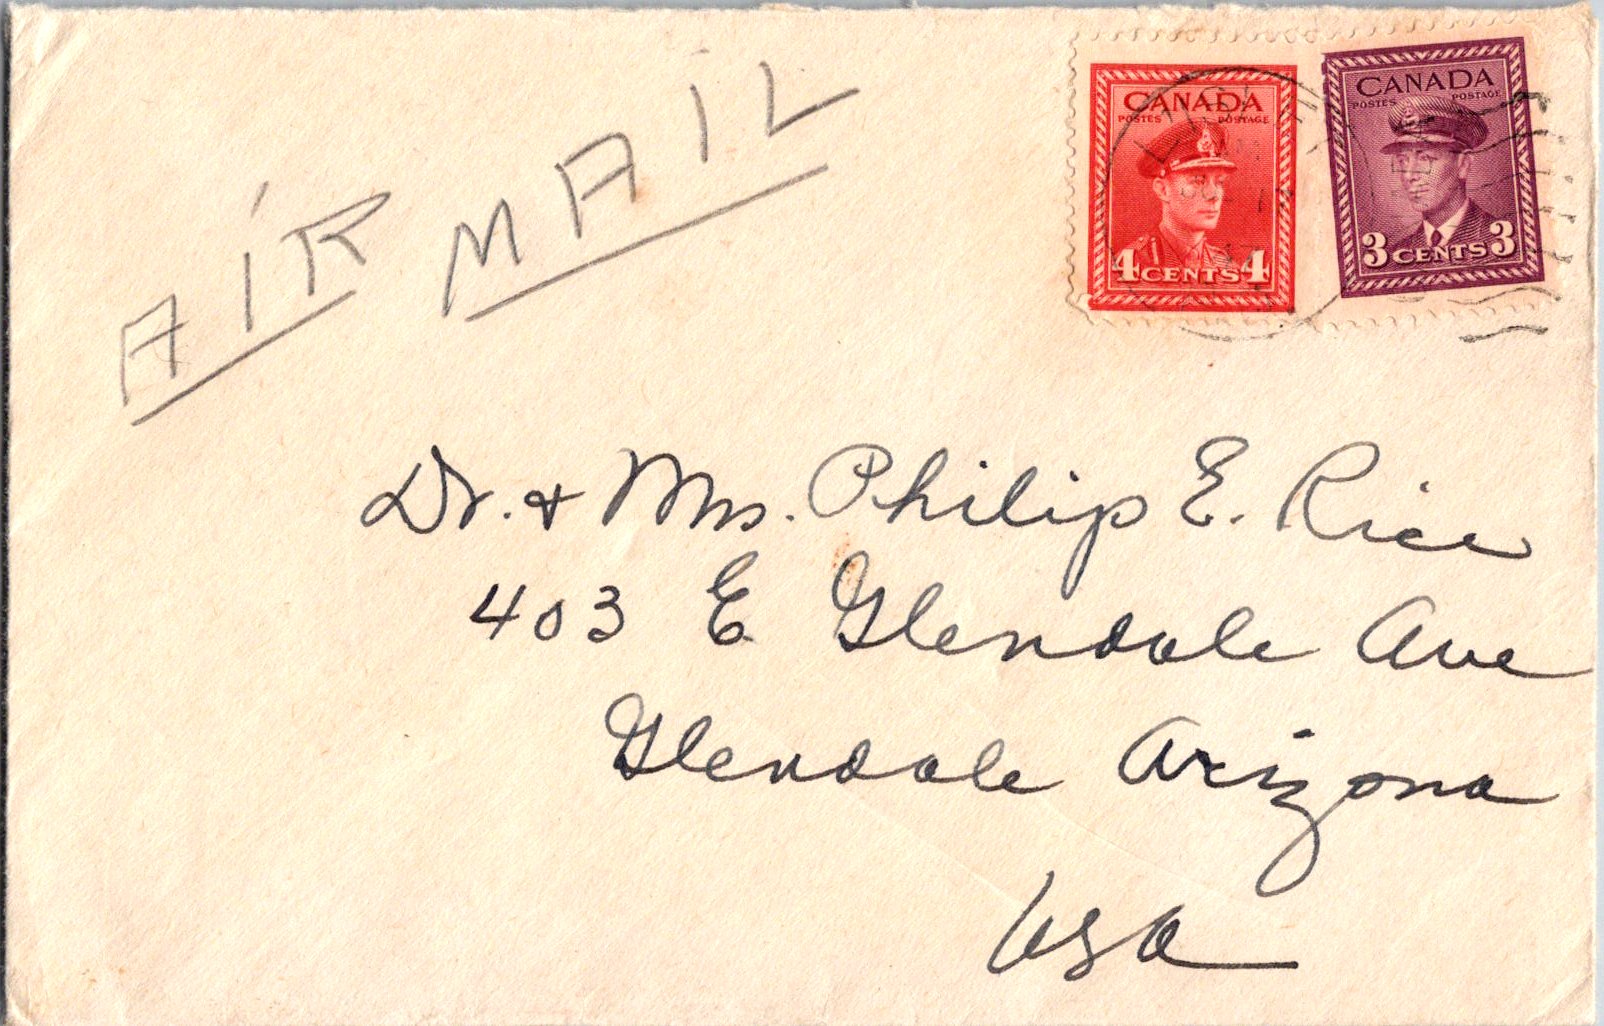 AIR MAIL
CANADA
POSTES POSTAGE
4 CENTS 4
CANADA
POSTES POSTAGE
3 CENTS 3
Dr. & Mrs. Philip E. Rice
403 E Glendale Ave
Glendale Arizona
USA